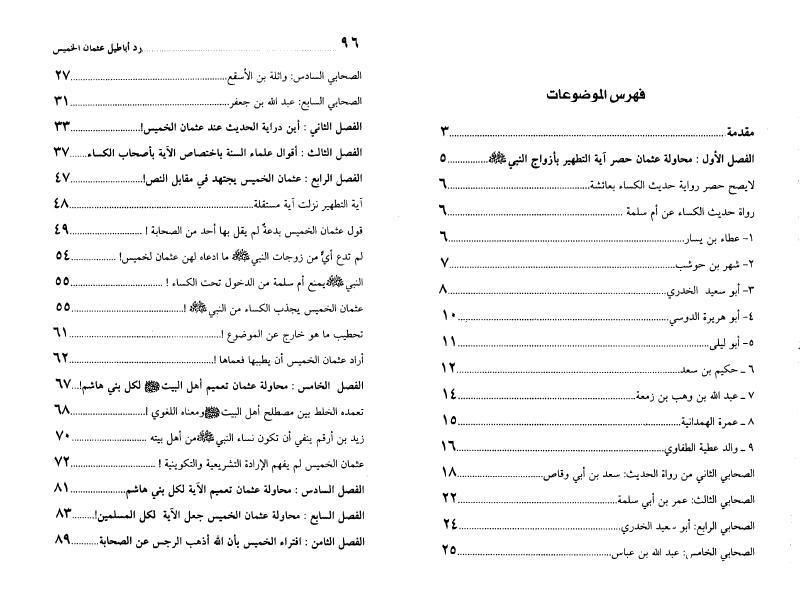 فهرس الموضوعات
مقدمة ..... ٣
الفصل الأول : محاولة عثمان حصر آية التطهير بأزواج النبي ﷺ ..... ٥
لايصح حصر رواية حديث الكساء بعائشة ..... ٦
رواة حديث الكساء عن أم سلمة ..... ٦
١- عطاء بن يسار ..... ٦
٢- شهر بن حوشب ..... ٧
٣- أبو سعيد الخدري ..... ٨
٤- أبو هريرة الدوسي ..... ١٠
٥- أبو ليلى ..... ١١
٦ ـ حكيم بن سعد ..... ١٢
٧ ـ عبد الله بن وهب بن زمعة ..... ١٤
٨ ـ عمرة الهمدانية ..... ١٥
٩ ـ والد عطية الطفاوي ..... ١٦
الصحابي الثاني من رواة الحديث: سعد بن أبي وقاص ..... ١٨
الصحابي الثالث: عمر بن أبي سلمة ..... ٢٢
الصحابي الرابع: أبو سعيد الخدري ..... ٢٤
الصحابي الخامس: عبد الله بن عباس ..... ٢٥
٩٦ ..... رد أباطيل عثمان الخميس
الصحابي السادس: واثلة بن الأسقع ..... ٢٧
الصحابي السابع: عبد الله بن جعفر ..... ٣١
الفصل الثاني : أين دراية الحديث عند عثمان الخميس! ..... ٣٣
الفصل الثالث : أقوال علماء السنة باختصاص الآية بأصحاب الكساء ..... ٣٧
الفصل الرابع : عثمان الخميس يجتهد في مقابل النص! ..... ٤٧
آية التطهير نزلت آية مستقلة ..... ٤٨
قول عثمان الخميس بدعةٌ لم يقل بها أحد من الصحابة ! ..... ٤٩
لم تدع أيٌّ من زوجات النبي ﷺ ما ادعاه لهن عثمان لخميس! ..... ٥٤
النبي ﷺ يمنع أم سلمة من الدخول تحت الكساء ! ..... ٥٥
عثمان الخميس يجذب الكساء من النبي ﷺ ! ..... ٥٥
تحطيب ما هو خارج عن الموضوع ! ..... ٦١
أراد عثمان الخميس أن يطببها فعماها ! ..... ٦٢
الفصل الخامس : محاولة عثمان تعميم أهل البيت ﷺ لكل بني هاشم! ... ٦٧
تعمده الخلط بين مصطلح أهل البيت ﷺ ومعناه اللغوي ! ..... ٦٨
زيد بن أرقم ينفي أن تكون نساء النبي ﷺ من أهل بيته ..... ٧٠
عثمان الخميس لم يفهم الإرادة التشريعية والتكوينية ! ..... ٧٢
الفصل السادس : محاولة عثمان تعميم الآية لكل بني هاشم ..... ٨١
الفصل السابع : محاولة عثمان الخميس جعل الآية لكل المسلمين! ..... ٨٣
الفصل الثامن : افتراء الخميس بأن الله أذهب الرجس عن الصحابة ..... ٨٩